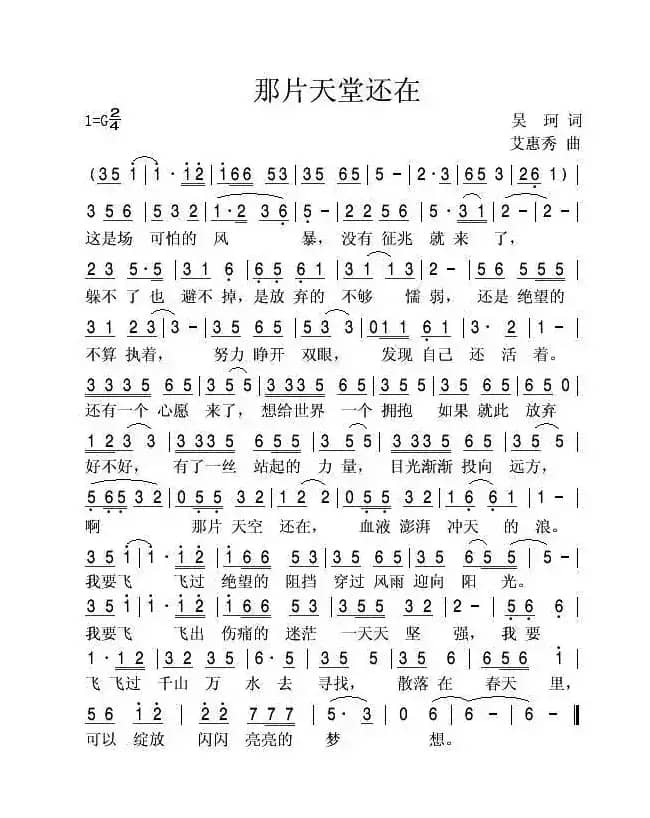 那片天堂还在
1=G 2/4
吴 珂 词
艾惠秀 曲
(3 5 1 | 1 · 1 2 | 1 6 6 5 3 | 3 5 6 5 | 5 - | 2 · 3 | 6 5 3 | 2 6 1 ) |
3 5 6 | 5 3 2 | 1 · 2 3 6 | 5 - | 2 2 5 6 | 5 · 3 1 | 2 - | 2 - |
这是场 可怕的 风 暴，没有 征兆 就 来 了，
2 3 5 · 5 | 3 1 6 | 6 5 6 1 | 3 1 1 3 | 2 - | 5 6 5 5 5 |
躲不 了 也 避不 掉，是放 弃的 不够 懦 弱， 还是 绝望的
3 1 2 3 | 3 - | 3 5 6 5 | 5 3 3 | 0 1 1 6 1 | 3 · 2 | 1 - |
不算 执着， 努力 睁开 双眼， 发现 自己 还 活 着。
3 3 3 5 6 5 | 3 5 5 | 3 3 3 5 6 5 | 5 6 5 | 3 5 6 5 | 6 5 0 |
还有一个 心愿 来了，想给世界 一个 拥抱 如果 就此 放弃
1 2 3 3 | 3 3 3 5 6 5 5 | 3 5 5 | 3 3 3 5 6 5 | 3 5 5 |
好不好， 有了一丝 站起的 力 量， 目光渐渐 投向 远方，
5 6 5 3 2 | 0 5 5 3 2 | 1 2 2 | 0 5 5 3 2 | 1 6 6 1 | 1 - |
啊 那片 天空 还在， 血液 澎湃 冲天 的 浪。
3 5 1 | 1 · 1 2 | 1 6 6 5 3 | 3 5 5 6 5 | 3 5 6 5 5 | 5 - |
我要飞 飞过 绝望的 阻挡 穿过 风雨 迎向 阳 光。
3 5 1 | 1 · 1 2 | 1 6 6 5 3 | 3 5 5 3 2 | 2 - | 5 6 6 |
我要飞 飞出 伤痛的 迷茫 一天天 坚 强，我 要
1 · 1 2 | 3 2 3 5 | 6 · 5 | 3 5 5 | 3 5 2 3 | 5 6 5 1 |
飞 飞过 千山 万 水 去 寻找， 散落 在 春天 里，
5 6 1 2 | 2 2 7 7 7 | 5 · 3 | 0 6 | 6 - | 6 - ‖
可以 绽放 闪闪 亮亮的 梦 想。